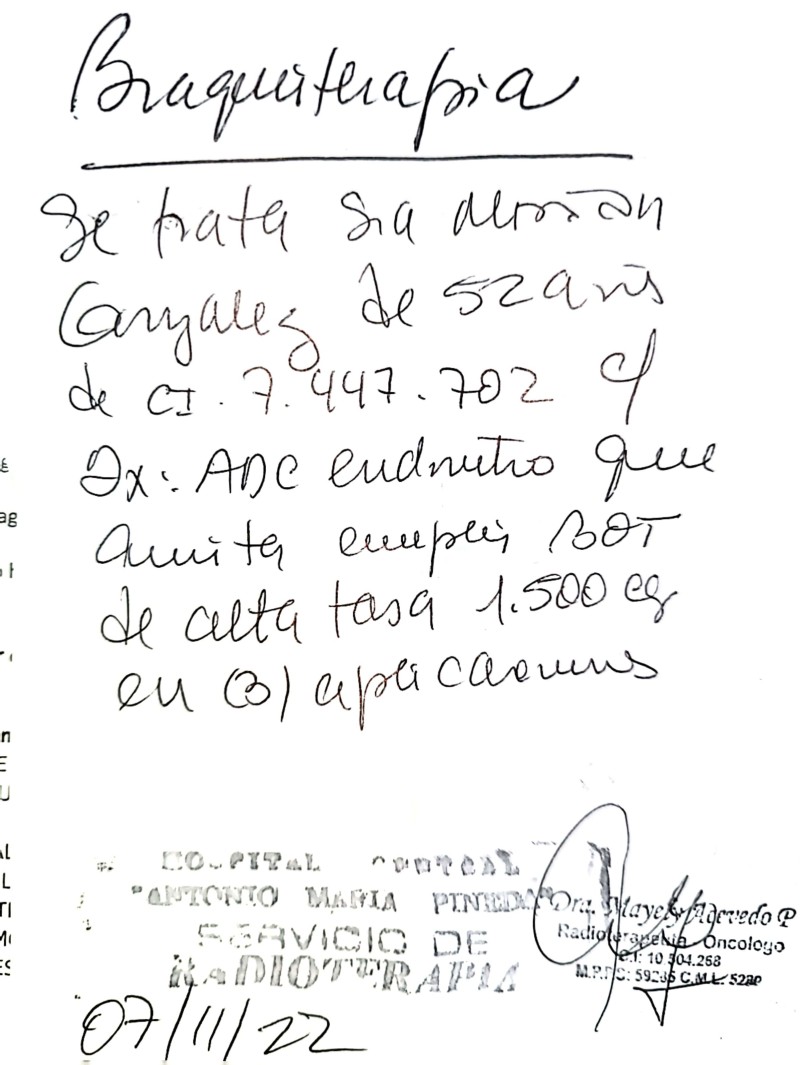 Braquiterapia
Se trata Sra
Gonzalez de 52 años
de CI. 7.447.702 c/
Dx: ADC endometrio que
amerita cumplir BQT
de alta tasa 1.500 cg
en (3) aplicaciones
HOSPITAL CENTRAL
"ANTONIO MARIA PINEDA"
SERVICIO DE
RADIOTERAPIA
Dra. Acevedo P
Radioterapeuta Oncologo
C.I: 10.504.268
07/11/22